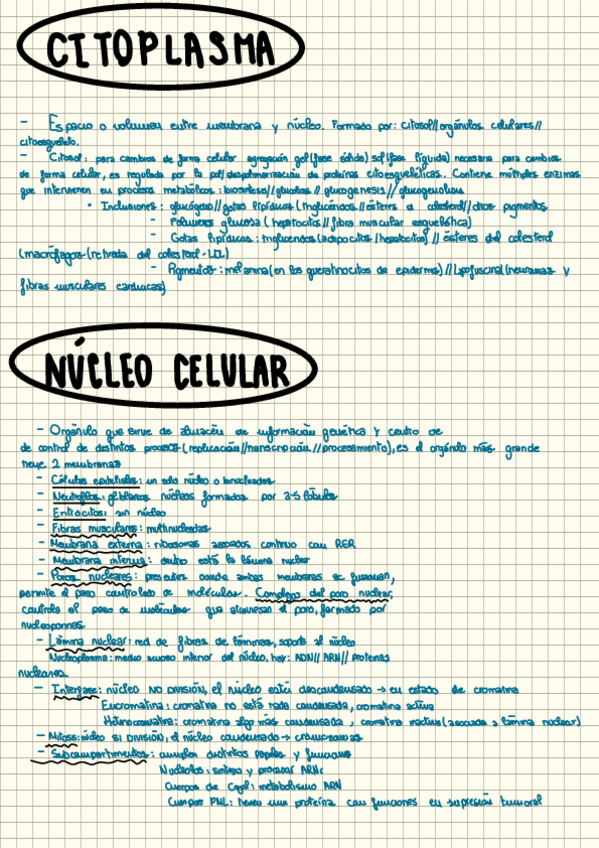 CITOPLASMA
- Espacio o volumen entre membrana y núcleo. Formado por: citosol//orgánulos celulares//
citoesqueleto.
- Citosol: para cambios de forma celular agregación gel(fase sólida) sol(fase líquida) necesaria para cambios
de forma celular, es regulada por la pol/despolimerización de proteínas citoesqueléticas. Contiene múltiples enzimas
que intervienen en procesos metabólicos: biosíntesis//glucólisis//glucogenesis//glucogenolisis
• Inclusiones: glucógeno//gotas lipídicas (triglicéridos//ésteres de colesterol//otros pigmentos
- Polímeros glucosa (hepatocitos//fibra muscular esquelética)
- Gotas lipídicas: triglicéridos(adipocitos/hepatocitos)//ésteres del colesterol
(macrófagos-(retirada del colesterol-LDL)
- Pigmentos: melanina(en los queratinocitos de epidermis)//lipofuscina(neuronas y
fibras musculares cardiacas)
NÚCLEO CELULAR
- Orgánulo que sirve de almacén de información genética y centro de
de control de distintos procesos(replicación//transcripción//procesamiento), es el orgánulo más grande
tiene 2 membranas
- Células epiteliales: un solo núcleo o binucleadas
- Neutrófilos: gl.blancos núcleos formados por 3-5 lóbulos
- Eritrocitos: sin núcleo
- Fibras musculares: multinucleadas
- Membrana externa: ribosomas asociados continuo con RER
- Membrana interna: dentro está la lámina nuclear
- Poros nucleares: presentes donde ambas membranas se fusionan,
permite el paso controlado de moléculas. Complejos del poro nuclear,
controla el paso de moléculas que atraviesan el poro, formado por
nucleoporinas
- Lámina nuclear: red de fibras de láminas, soporte al núcleo
Nucleoplasma: medio acuoso interior del núcleo, hay: ADN//ARN//proteínas
nucleares
- Interfase: núcleo NO DIVISIÓN, el núcleo está descondensado → en estado de cromatina
Eucromatina: cromatina no está nada condensada, cromatina activa
Heterocromatina: cromatina algo más condensada, cromatina inactiva (asociada a lámina nuclear)
- Mitosis: núcleo SI DIVISIÓN, el núcleo condensado → cromosomas
- Subcompartimentos: cumplen distintos papeles y funciones
Nucléolos: síntesis y procesar ARNr
Cuerpos de Cajal: metabolismo ARN
Cuerpos PML: tienen una proteína con funciones en supresión tumoral